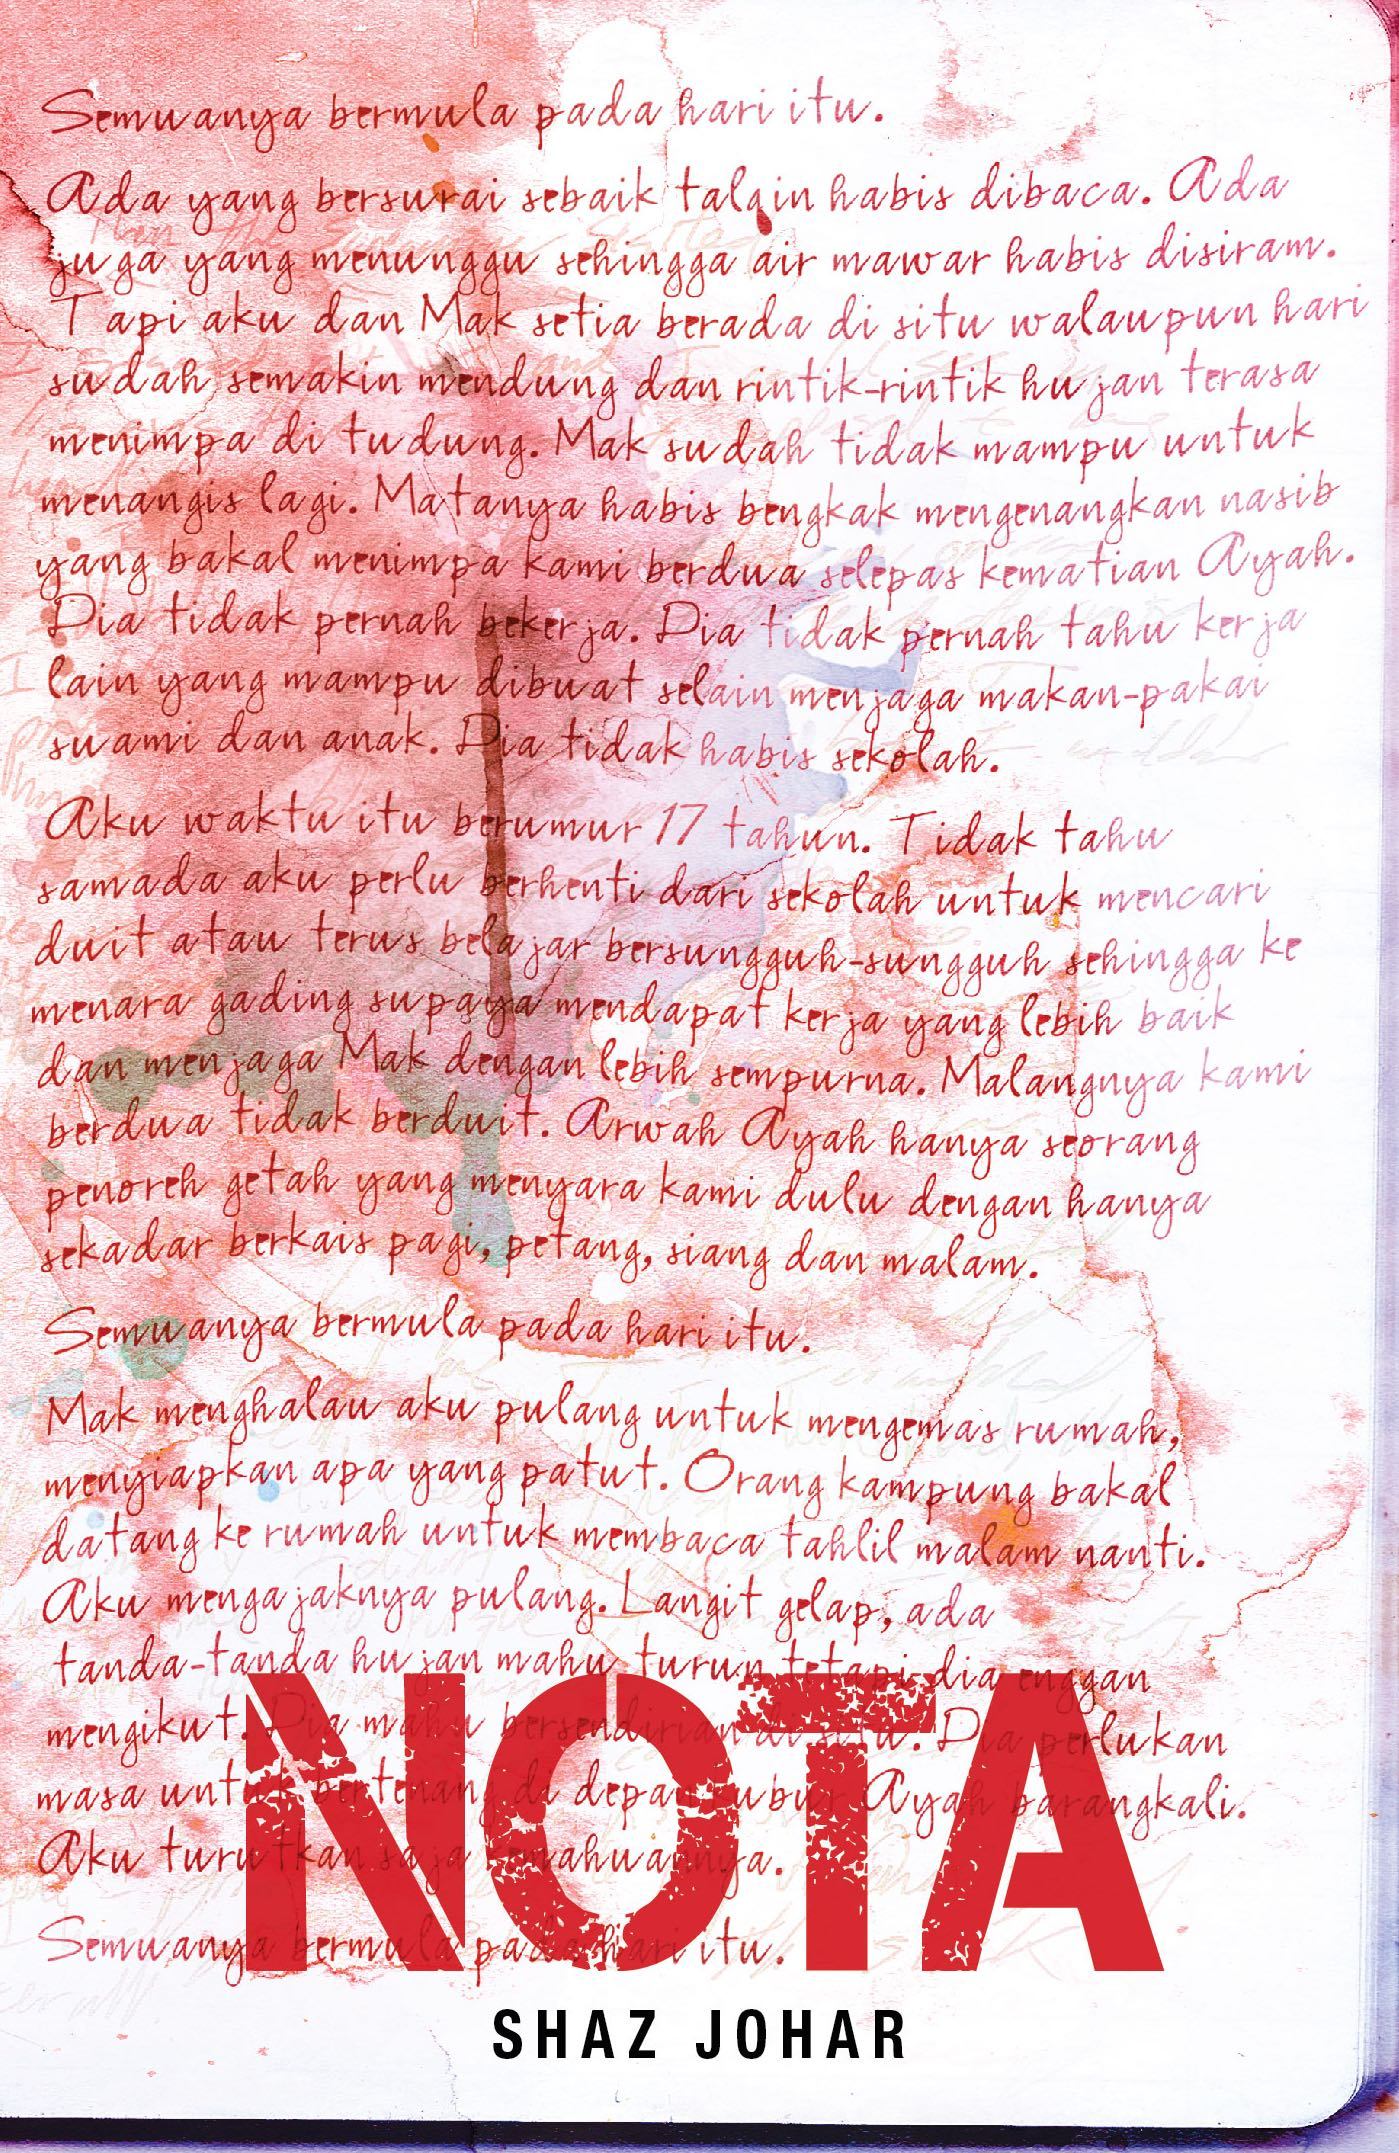 Semuanya bermula pada hari itu.
Ada yang bersurai sebaik talqin habis dibaca. Ada
juga yang menunggu sehingga air mawar habis disiram.
Tapi aku dan Mak setia berada di situ walaupun hari
sudah semakin mendung dan rintik-rintik hujan terasa
menimpa di tudung. Mak sudah tidak mampu untuk
menangis lagi. Matanya habis bengkak mengenangkan nasib
yang bakal menimpa kami berdua selepas kematian Ayah.
Dia tidak pernah bekerja. Dia tidak pernah tahu kerja
lain yang mampu dibuat selain menjaga makan-pakai
suami dan anak. Dia tidak habis sekolah.
Aku waktu itu berumur 17 tahun. Tidak tahu
samada aku perlu berhenti dari sekolah untuk mencari
duit atau terus belajar bersungguh-sungguh sehingga ke
menara gading supaya mendapat kerja yang lebih baik
dan menjaga Mak dengan lebih sempurna. Malangnya kami
berdua tidak berduit. Arwah Ayah hanya seorang
penoreh getah yang menyara kami dulu dengan hanya
sekadar berkais pagi, petang, siang dan malam.
Semuanya bermula pada hari itu.
Mak menghalau aku pulang untuk mengemas rumah,
menyiapkan apa yang patut. Orang kampung bakal
datang ke rumah untuk membaca tahlil malam nanti.
Aku mengajaknya pulang. Langit gelap, ada
tanda-tanda hujan mahu turun tetapi dia enggan
mengikut. Dia mahu bersendirian di situ. Dia perlukan
masa untuk bertenang di depan kubur Ayah barangkali.
Aku turutkan saja kemahuannya.
Semuanya bermula pada hari itu.
NOTA
SHAZ JOHAR